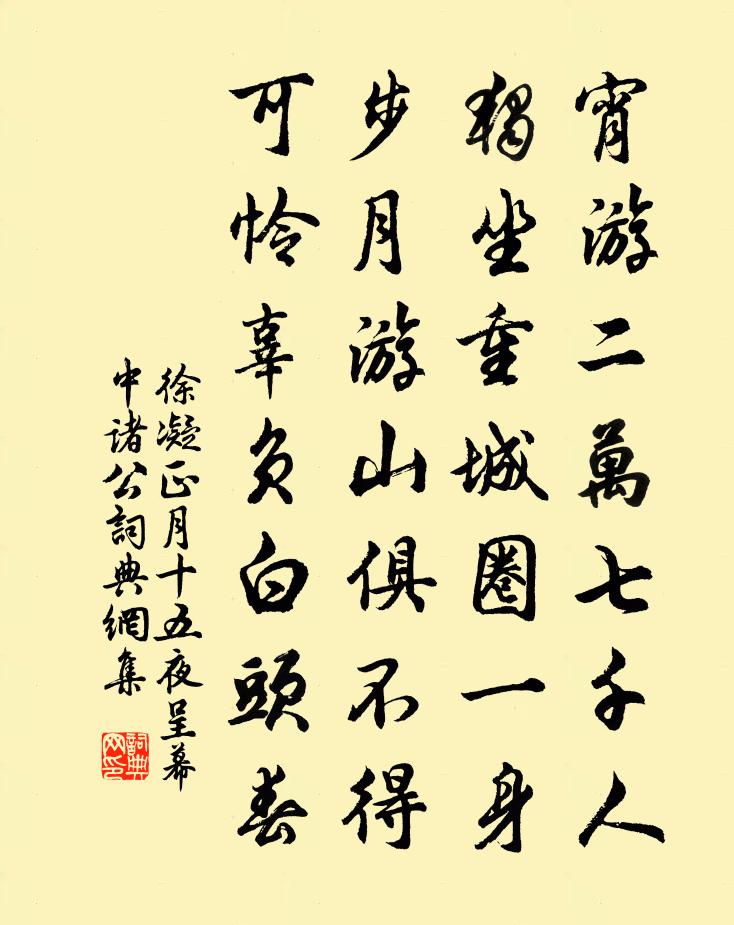 宵游二萬七千人
獨坐重城圈一身
步月游山俱不得
可怜辜負白頭春
徐凝正月十五夜呈幕
中诸公詞典網集
詞典网印